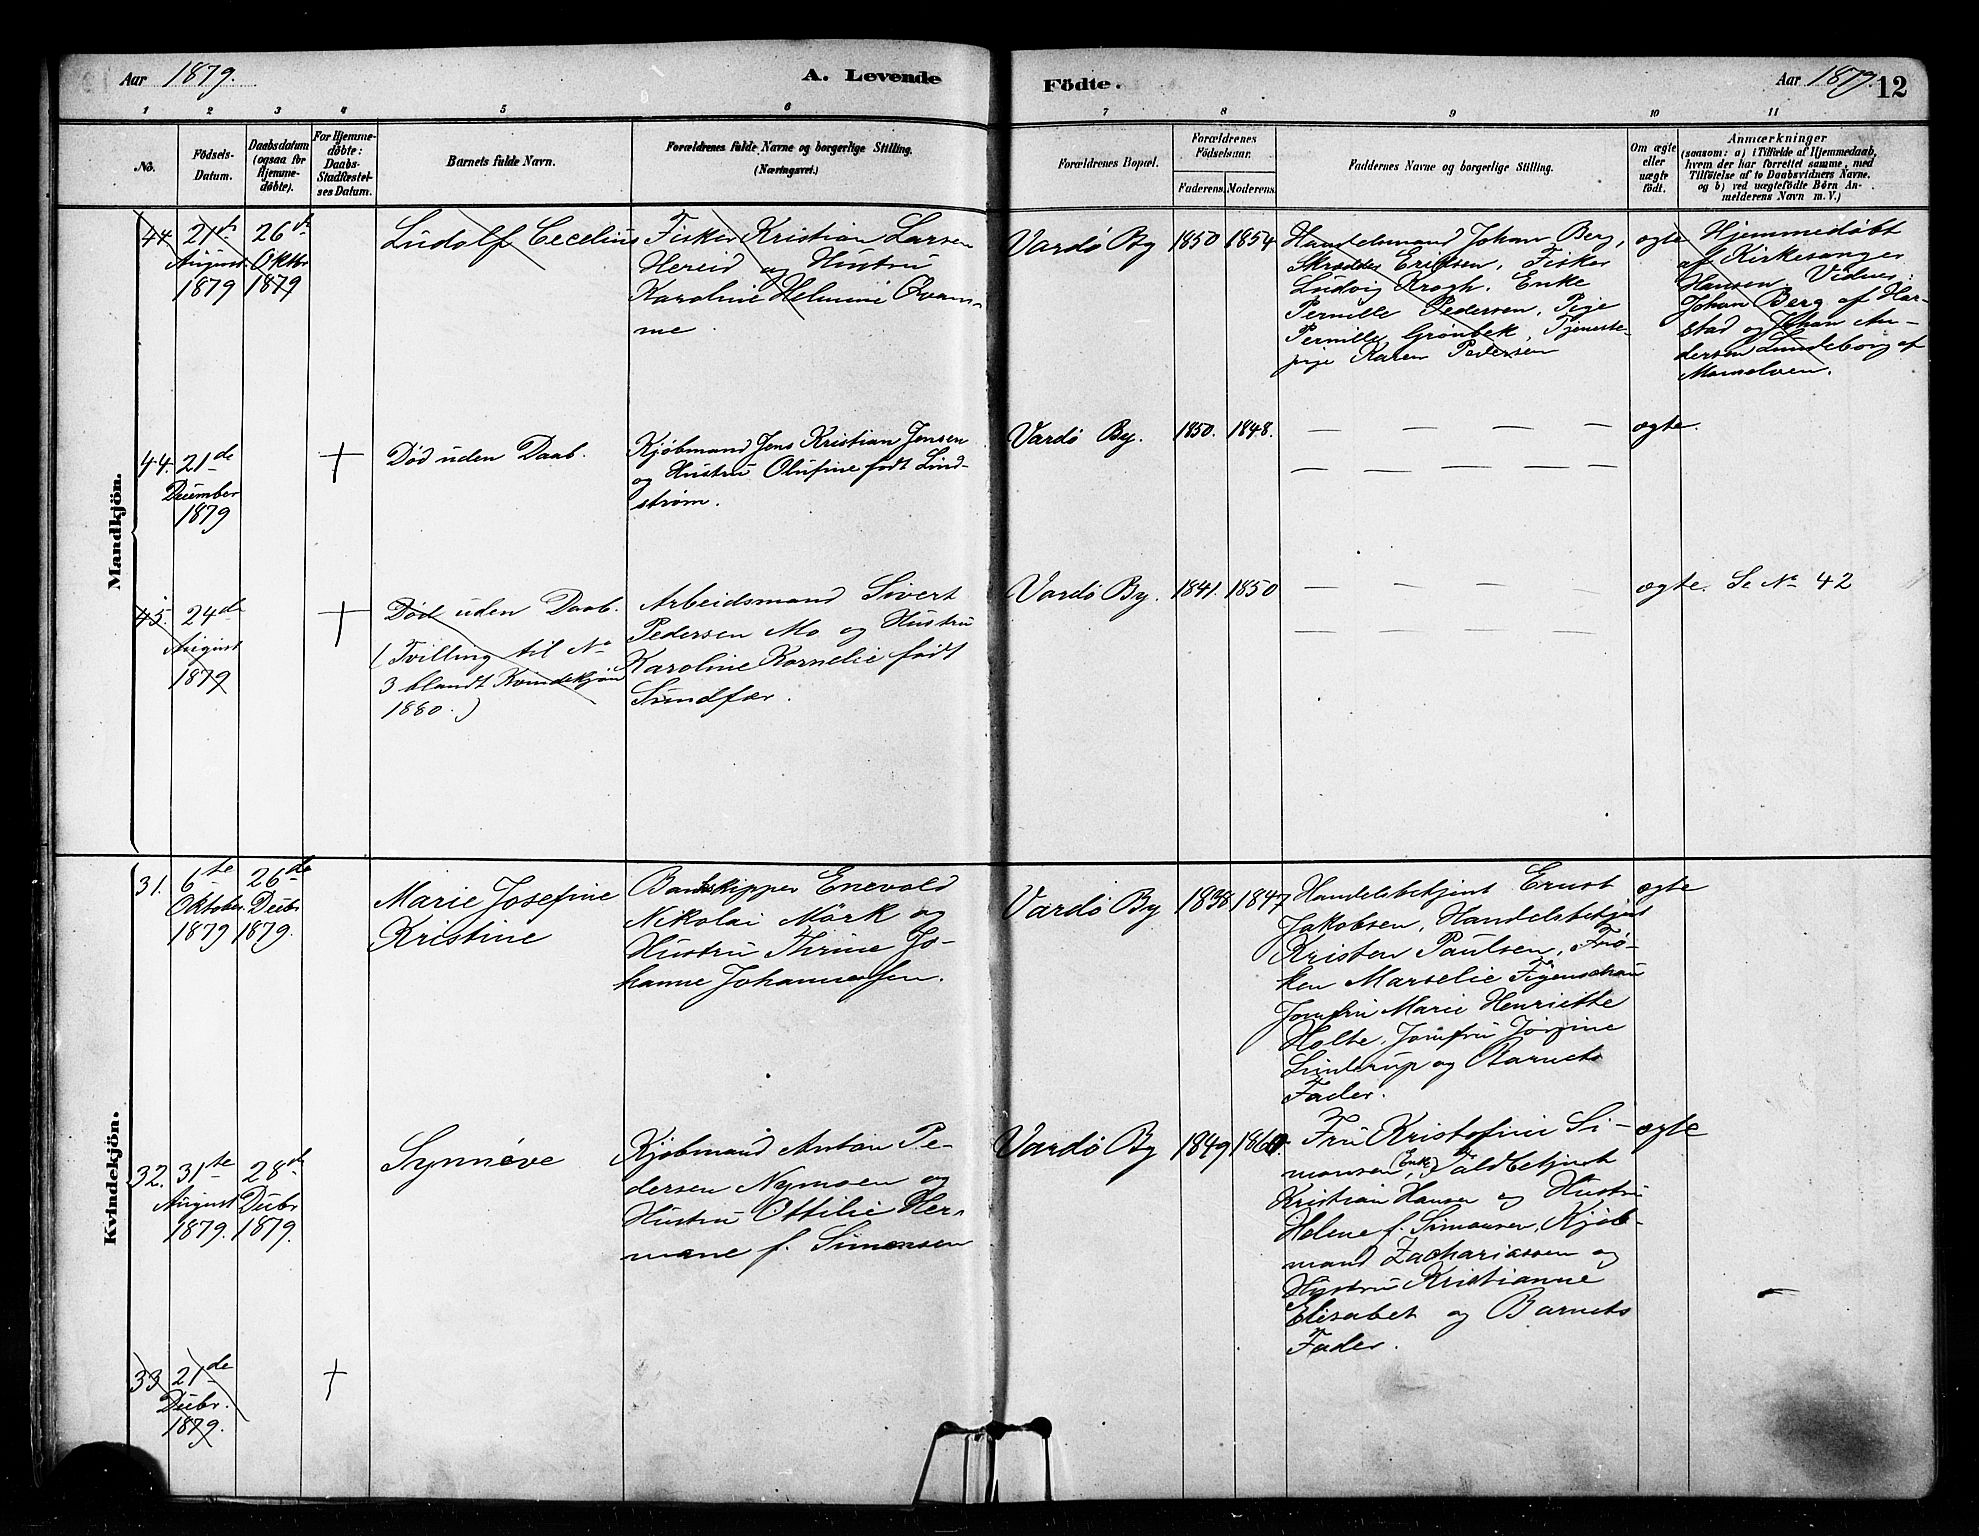 Aar 1879.
A. Levende
Födte.
Aar 1879.
12
1 2 3 4 5 6 7 8 9 10 11
No.
Födsels-
Datum.
Daabsdatum
(ogsaa for
Hjemme-
döbte).
For Hjemme-
döbte:
Daabs-
Stadfæstel-
ses Datum.
Barnets fulde Navn.
Forældrenes fulde Navne og borgerlige Stilling.
(Næringsvei.)
Forældrenes Bopæl.
Forældrenes
Födselsaar.
Faderens. Moderens.
Faddernes Navne og borgerlige Stilling.
Om ægte
eller
uægte
födt.
Anmærkninger
(saasom: a) i Tilfælde af Hjemmedaab,
hvem der har forrettet samme, med
Tilföielse af to Daabsvidners Navne,
og b) ved uægtefödte Börn An-
melderens Navn m. V.)
Mandkjön.
44.
21de
August
1879
26de
Oktbr
1879
Ludolf Cecelius
Fisker Kristian Larsen
Hereid og Hustru
Karoline Helmine Qvam-
me.
Vardö By
1850
1854
Handelsmand Johan Berg,
Skrædder Eriksen, Fisker
Ludvig Krogh, Enke
Pernille Pedersen, Pige
Pernille Grönbek, Tjeneste-
pige Karen Pedersen
ægte
Hjemmedöbt
af Kirkesanger
Hansen. Vidner
Johan Berg af Har-
stad og Johan An-
dersen Lundeborg af
Maaselven.
44.
21de
December
1879
†
Død uden Daab.
Kjøbmand Jens Kristian Jensen
og Hustru Olufine født Lind-
strøm.
Vardö By.
1850.
1848.
— — — —
— — — — —
ægte.
45.
24de
August
1879
†
Død uden Daab.
(Tvilling til No
3 blandt Kvindekjön
1880.)
Arbeidsmand Sivert
Pedersen Mo og Hustru
Karoline Kornelie født
Sundfær.
Vardö By.
1841.
1850
— — — —
— — — —
ægte.
Se No 42
Kvindekjön.
31.
6te
Oktober
1879
26de
Decbr
1879.
Marie Josefine
Kristine
Baadskipper Enevold
Nikolai Mörk og
Hustru Thrine Jo-
hanne Johannesen.
Vardö By
1838.
1847
Handelsbetjent Ernst
Jakobsen, Handelsbetjent
Kristen Paulsen, Frö-
ken Marselie Figenschau
Jomfru Marie Henriette
Holte, Jomfru Jörgine
Linderup og Barnets
Fader.
ægte
32.
31te
August
1879.
28de
Decbr
1879.
Synnöve
Kjøbmand Anton Pe-
dersen Nymoen og
Hustru Ottilie Her-
mane f. Simonsen
Vardö By
1849
1860.
Fru Kristofine Si-
monsen (Enke), Toldbetjent
Kristian Hansen og Hustru
Helene f. Simonsen, Kjøb-
mand Zachariassen og
Hustru Kristianne
Elisabet og Barnets
Fader.
ægte
33
21de
Decbr.
1879.
†